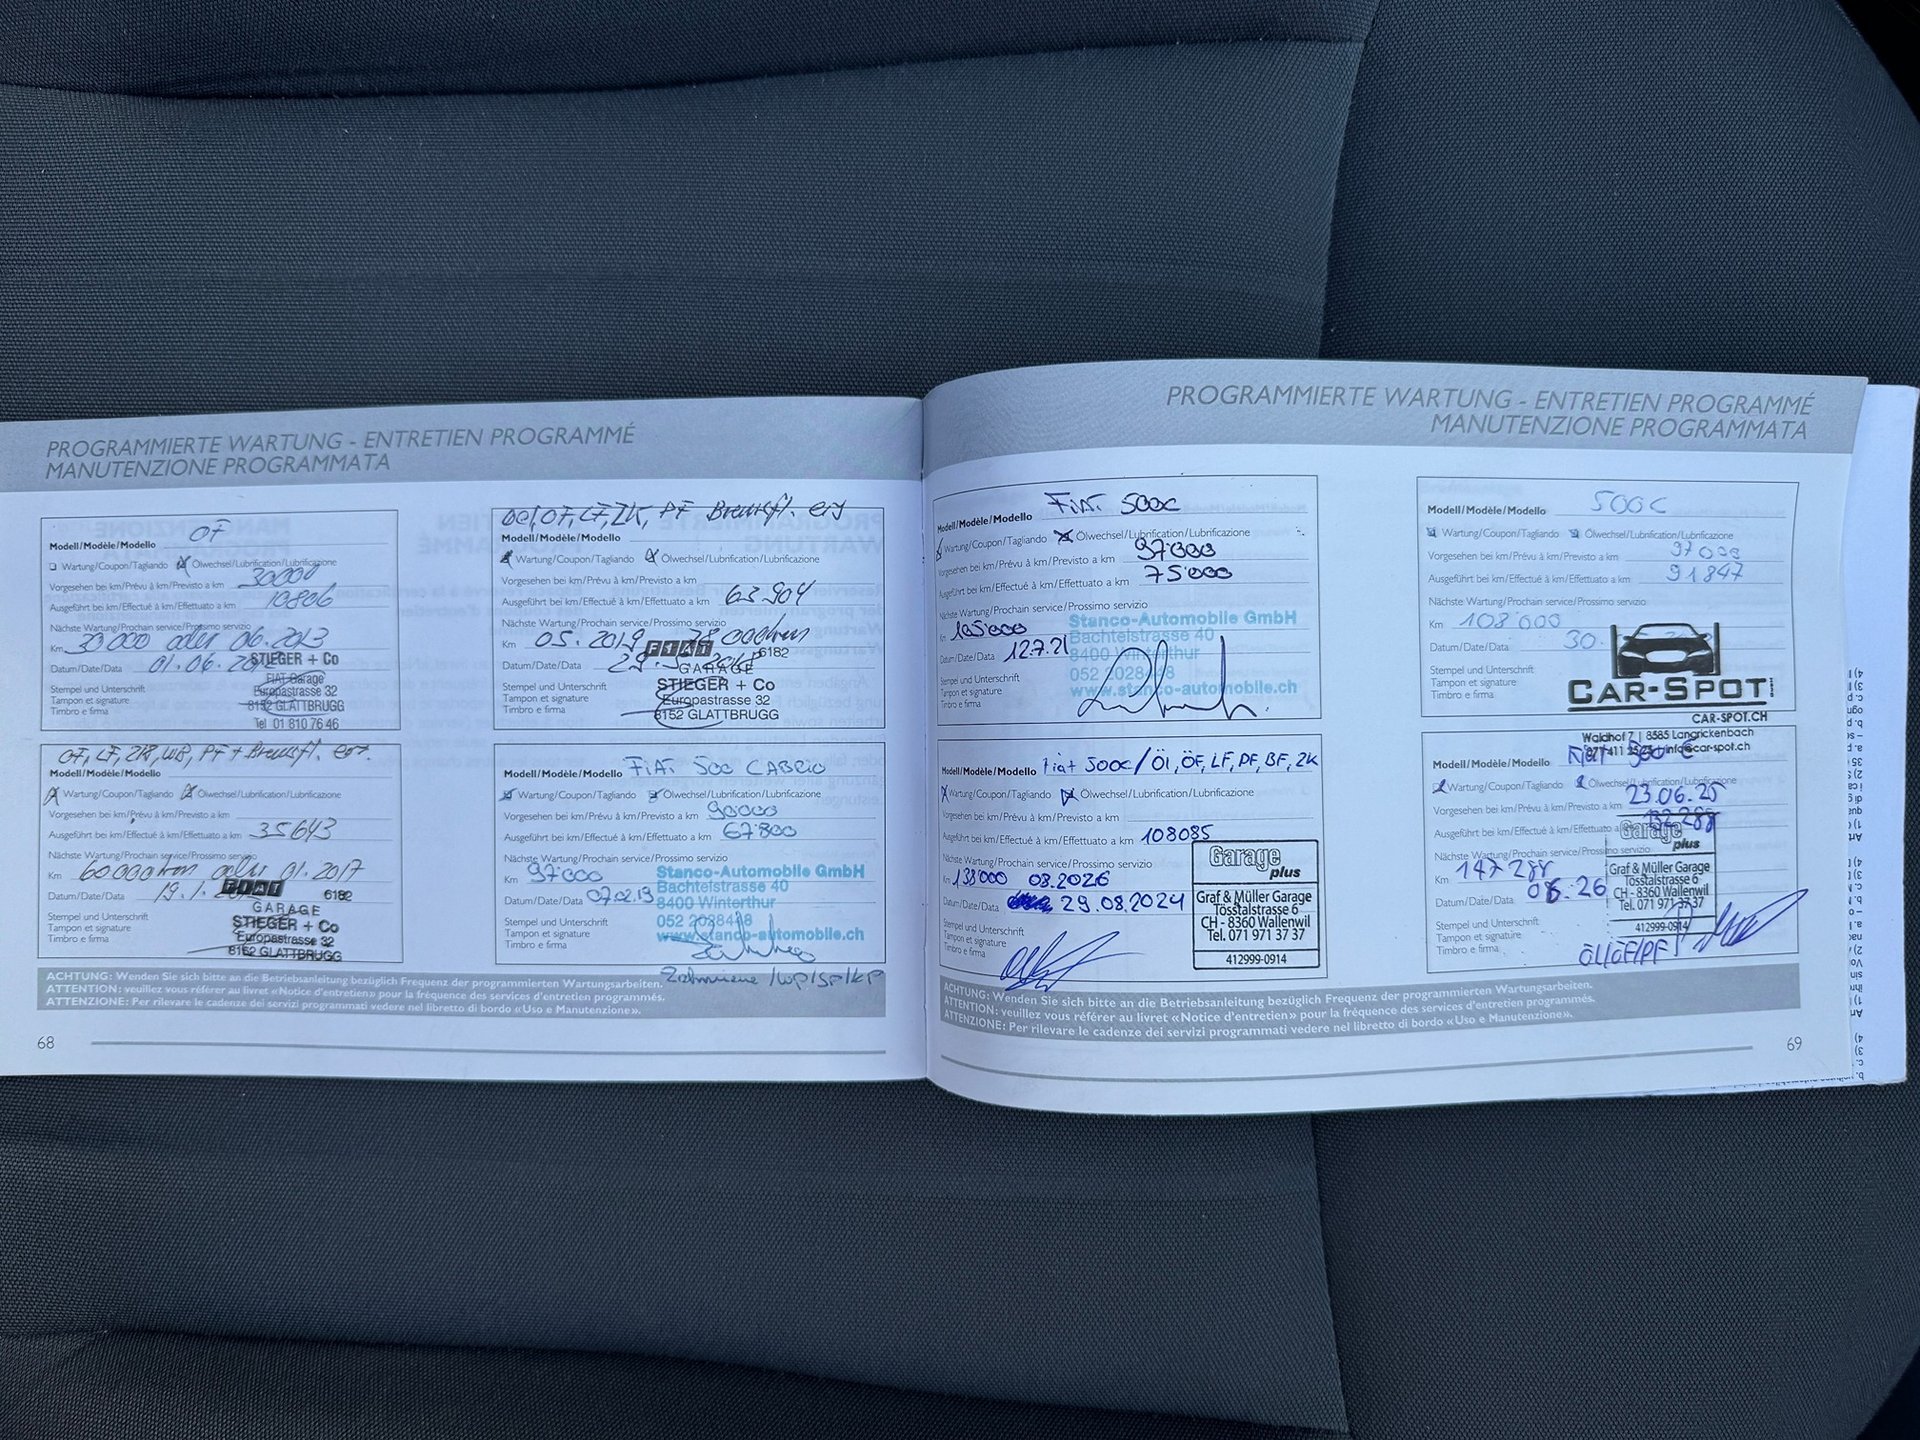 PROGRAMMIERTE WARTUNG - ENTRETIEN PROGRAMMÉ
MANUTENZIONE PROGRAMMATA
OF
Modell/Modèle/Modello
Wartung/Coupon/Tagliando Ölwechsel/Lubrification/Lubrificazione
Vorgesehen bei km/Prévu à km/Previsto a km 30000
Ausgeführt bei km/Effectué à km/Effettuato a km 10806
Nächste Wartung/Prochain service/Prossimo servizio
Km 30 000 oder 06.2013
Datum/Date/Data 01.06.
Stempel und Unterschrift
Tampon et signature
Timbro e firma
STIEGER + Co
FIAT Garage
Europastrasse 32
8152 GLATTBRUGG
Tel 01 810 76 46
OF, LF, ZK, WB, PF + Bremsfl. ers.
Modell/Modèle/Modello
Wartung/Coupon/Tagliando Ölwechsel/Lubrification/Lubrificazione
Vorgesehen bei km/Prévu à km/Previsto a km
Ausgeführt bei km/Effectué à km/Effettuato a km 35643
Nächste Wartung/Prochain service/Prossimo servizio
Km 60000km oder 01.2017
Datum/Date/Data 19.1.
Stempel und Unterschrift
Tampon et signature
Timbro e firma
FIAT 6182
GARAGE
STIEGER + Co
Europastrasse 32
8152 GLATTBRUGG
Oel, OF, LF, ZK, PF Bremsfl. ers
Modell/Modèle/Modello
Wartung/Coupon/Tagliando Ölwechsel/Lubrification/Lubrificazione
Vorgesehen bei km/Prévu à km/Previsto a km
Ausgeführt bei km/Effectué à km/Effettuato a km 63904
Nächste Wartung/Prochain service/Prossimo servizio
Km 05.2019
Datum/Date/Data
Stempel und Unterschrift
Tampon et signature
Timbro e firma
FIAT 6182
GARAGE
STIEGER + Co
Europastrasse 32
8152 GLATTBRUGG
Modell/Modèle/Modello FiAT 500 CABRIO
Wartung/Coupon/Tagliando Ölwechsel/Lubrification/Lubrificazione
Vorgesehen bei km/Prévu à km/Previsto a km 90000
Ausgeführt bei km/Effectué à km/Effettuato a km 67800
Nächste Wartung/Prochain service/Prossimo servizio
Km 97000
Datum/Date/Data 07.02.19
Stempel und Unterschrift
Tampon et signature
Timbro e firma
Stanco-Automobile GmbH
Bachtelstrasse 40
8400 Winterthur
052 2028448
www.stanco-automobile.ch
Zahnriemen /WP/SP/KP
ACHTUNG: Wenden Sie sich bitte an die Betriebsanleitung bezüglich Frequenz der programmierten Wartungsarbeiten.
ATTENTION: veuillez vous référer au livret «Notice d'entretien» pour la fréquence des services d'entretien programmés.
ATTENZIONE: Per rilevare le cadenze dei servizi programmati vedere nel libretto di bordo «Uso e Manutenzione».
68
PROGRAMMIERTE WARTUNG - ENTRETIEN PROGRAMMÉ
MANUTENZIONE PROGRAMMATA
Modell/Modèle/Modello FiAT 500C
Wartung/Coupon/Tagliando Ölwechsel/Lubrification/Lubrificazione
Vorgesehen bei km/Prévu à km/Previsto a km 97'000
Ausgeführt bei km/Effectué à km/Effettuato a km 75'000
Nächste Wartung/Prochain service/Prossimo servizio
Km 105'000
Datum/Date/Data 12.7.21
Stempel und Unterschrift
Tampon et signature
Timbro e firma
Stanco-Automobile GmbH
Bachtelstrasse 40
8400 Winterthur
052 2028448
www.stanco-automobile.ch
Modell/Modèle/Modello Fiat 500c/Öl, ÖF, LF, PF, BF, ZK
Wartung/Coupon/Tagliando Ölwechsel/Lubrification/Lubrificazione
Vorgesehen bei km/Prévu à km/Previsto a km
Ausgeführt bei km/Effectué à km/Effettuato a km 108085
Nächste Wartung/Prochain service/Prossimo servizio
Km 138000 08.2026
Datum/Date/Data 29.08.2024
Stempel und Unterschrift
Tampon et signature
Timbro e firma
Garage
plus
Graf & Müller Garage
Tösstalstrasse 6
CH - 8360 Wallenwil
Tel. 071 971 37 37
412999-0914
Modell/Modèle/Modello 500C
Wartung/Coupon/Tagliando Ölwechsel/Lubrification/Lubrificazione
Vorgesehen bei km/Prévu à km/Previsto a km 97000
Ausgeführt bei km/Effectué à km/Effettuato a km 91847
Nächste Wartung/Prochain service/Prossimo servizio
Km 108 000
Datum/Date/Data 30.
Stempel und Unterschrift
Tampon et signature
Timbro e firma
CAR-SPOT
CAR-SPOT.CH
Waldhof 7 | 8585 Langrickenbach
info@car-spot.ch
Modell/Modèle/Modello Fiat 500 C
Wartung/Coupon/Tagliando Ölwechsel/Lubrification/Lubrificazione
Vorgesehen bei km/Prévu à km/Previsto a km 23.06.25
Ausgeführt bei km/Effectué à km/Effettuato a km 132288
Nächste Wartung/Prochain service/Prossimo servizio
Km 147 288
Datum/Date/Data 06.26
Stempel und Unterschrift
Tampon et signature
Timbro e firma
Garage
plus
Graf & Müller Garage
Tösstalstrasse 6
CH - 8360 Wallenwil
Tel. 071 971 37 37
412999-0914
Öl/ÖF/PF
ACHTUNG: Wenden Sie sich bitte an die Betriebsanleitung bezüglich Frequenz der programmierten Wartungsarbeiten.
ATTENTION: veuillez vous référer au livret «Notice d'entretien» pour la fréquence des services d'entretien programmés.
ATTENZIONE: Per rilevare le cadenze dei servizi programmati vedere nel libretto di bordo «Uso e Manutenzione».
69